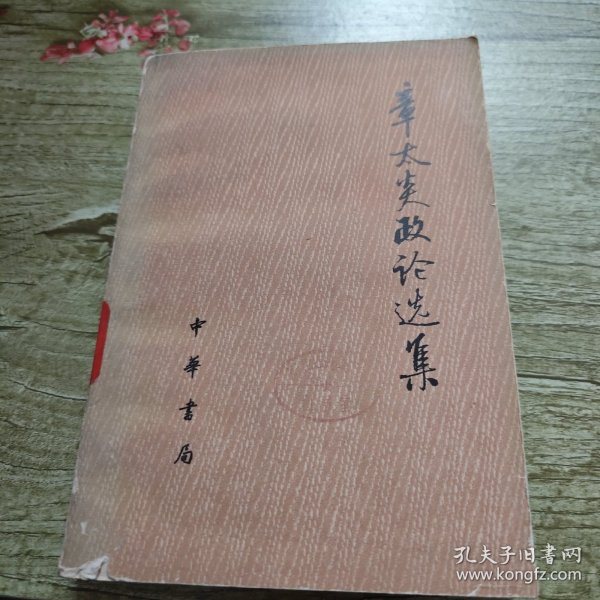 章太炎政论选集
中華書局
孔夫子旧书网
www.kongfz.com